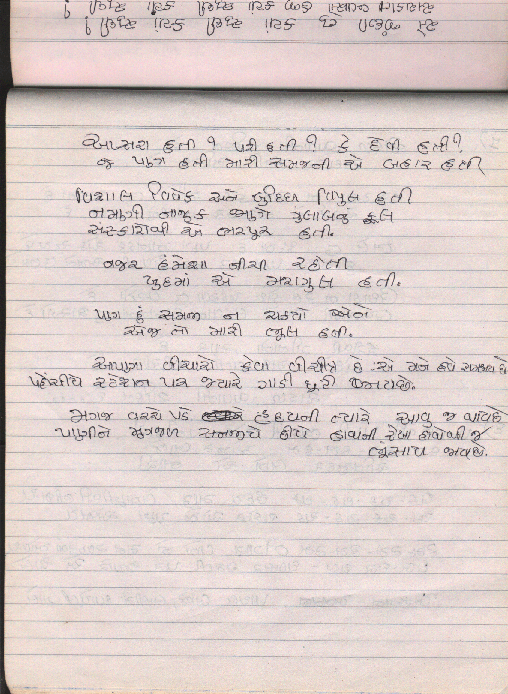 અપ્સરા હતી ? પરી હતી ? કે દેવી હતી ?
જે પણ હતી મારી સમજની એ બહાર હતી
વિશાલ વિવેક અને બુદ્ધિ વિપુલ હતી
નમણી નાજુક જાણે ગુલાબનું ફૂલ
સંસ્કારોથી એ ભરપૂર હતી.
નજર હંમેશા નીચી રહેતી
ખુદમાં એ મશગુલ હતી.
પણ હું સમજી ન શક્યો એને
એજ તો મારી ભૂલ હતી.
આપણા વીચારો કેવા વીચીત્ર છે એ મને હવે સમજાય છે
પહોંચીયે સ્ટેશન પર જ્યારે ગાડી છૂટી જાય છે.
મગજ વચ્ચે પડે હૃદયની ત્યારે આવુ જ થાય છે
પાણીને મૃગજળ સમજીયે છીયે હાથની રેખા હાથેથી જ
ભૂંસાય જાય છે.